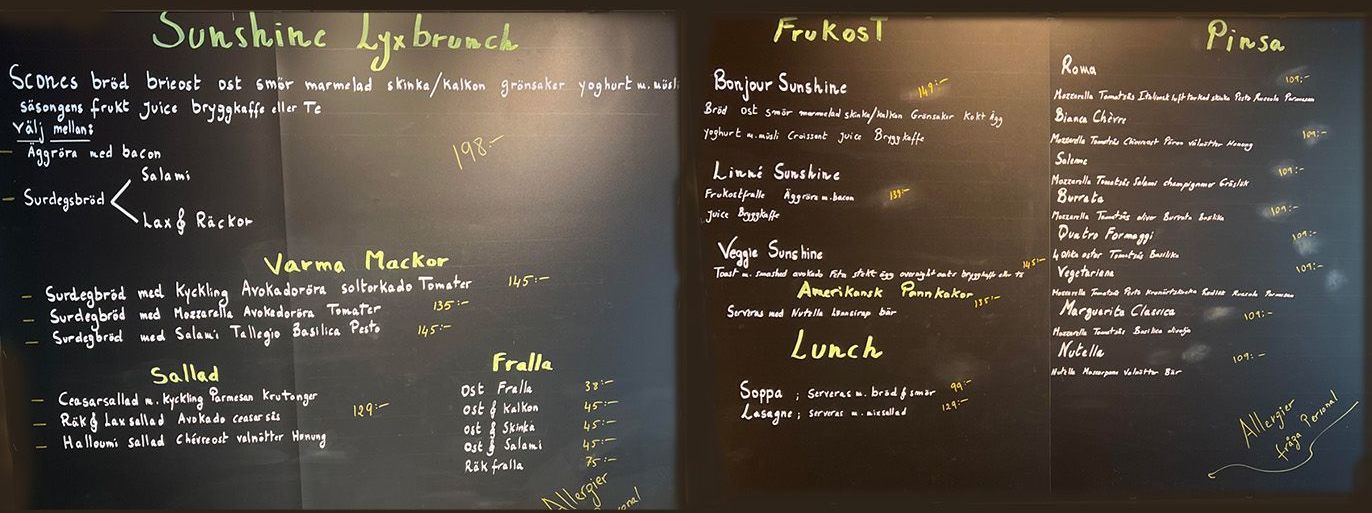 Sunshine Lyxbrunch
Scones bröd brieost ost smör marmelad skinka/kalkon grönsaker yoghurt m. müsli
säsongens frukt Juice bryggkaffe eller Te
Välj mellan:
- Äggröra med bacon
198:-
- Surdegsbröd
Salami
Lax & Räckor
Varma Mackor
- Surdegbröd med Kyckling Avokadoröra soltorkado Tomater 145:-
- Surdegbröd med Mozzarella Avokedoröra Tomater 135:-
- Surdegbröd med Salami Tallegio Basilica Pesto 145:-
Sallad
- Ceasarsallad m. Kyckling Parmesan Krutonger
- Räk & Laxsallad Avokado ceasar sås 129:-
- Halloumi sallad Chévreost valnötter Honung
Fralla
Ost Fralla 38:-
Ost & Kalkon 45:-
Ost & Skinka 45:-
Ost & Salami 45:-
Räk fralla 75:-
Allergier
Frukost
Bonjour Sunshine 149:-
Bröd ost smör marmelad skinka/kalkon Grönsaker Kokt ägg
yoghurt m. müsli Croissant Juice Bryggkaffe
Linné Sunshine
Frukostfralle Äggröra m. bacon 139:-
Juice Bryggkaffe
Veggie Sunshine
Toast m. smashed avokado Feta stekt ägg overnight oats bryggkaffe eller te 145:-
Amerikansk Pannkakor 135:-
Serveras med Nutella lönnsirap bär
Lunch
Soppa ; Serveras m. bröd & smör 99:-
Lasagne ; serveras m. mixsallad 129:-
Pinsa
Roma 109:-
Mozzarella Tomatsås Italiensk lufttorkad skinka Pesto Ruccola Parmesan
Bianca Chèvre 109:-
Mozzarella Tomatsås Chèvreost Päron Valnötter Honung
Saleme 109:-
Mozzarella Tomatsås Salami champignoner Gräslök
Burrata 109:-
Mozzarella Tomatsås oliver Burrata Basilika
Quatro Formaggi 109:-
4 olika ostar Tomatsås Basilika
Vegetariana 109:-
Mozzarella Tomatsås Pesto Kronärtskocka Rädisor Ruccola Parmesan
Marguerita Classica 109:-
Mozzarella Tomatsås Basilica olivolja
Nutella 109:-
Nutella Mascarpone Valnötter Bär
Allergier
fråga Personal